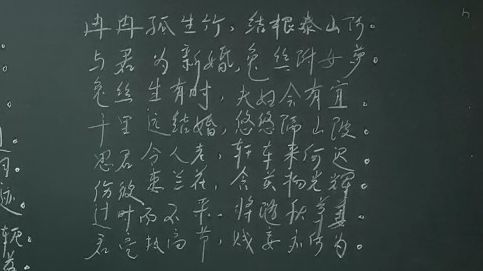 冉冉孤生竹，结根泰山阿。
与君为新婚，兔丝附女萝。
兔丝生有时，夫妇会有宜。
千里远结婚，悠悠隔山陂。
思君令人老，轩车来何迟。
伤彼蕙兰花，含英扬光辉。
过时而不采，将随秋草萎。
君亮执高节，贱妾亦何为。